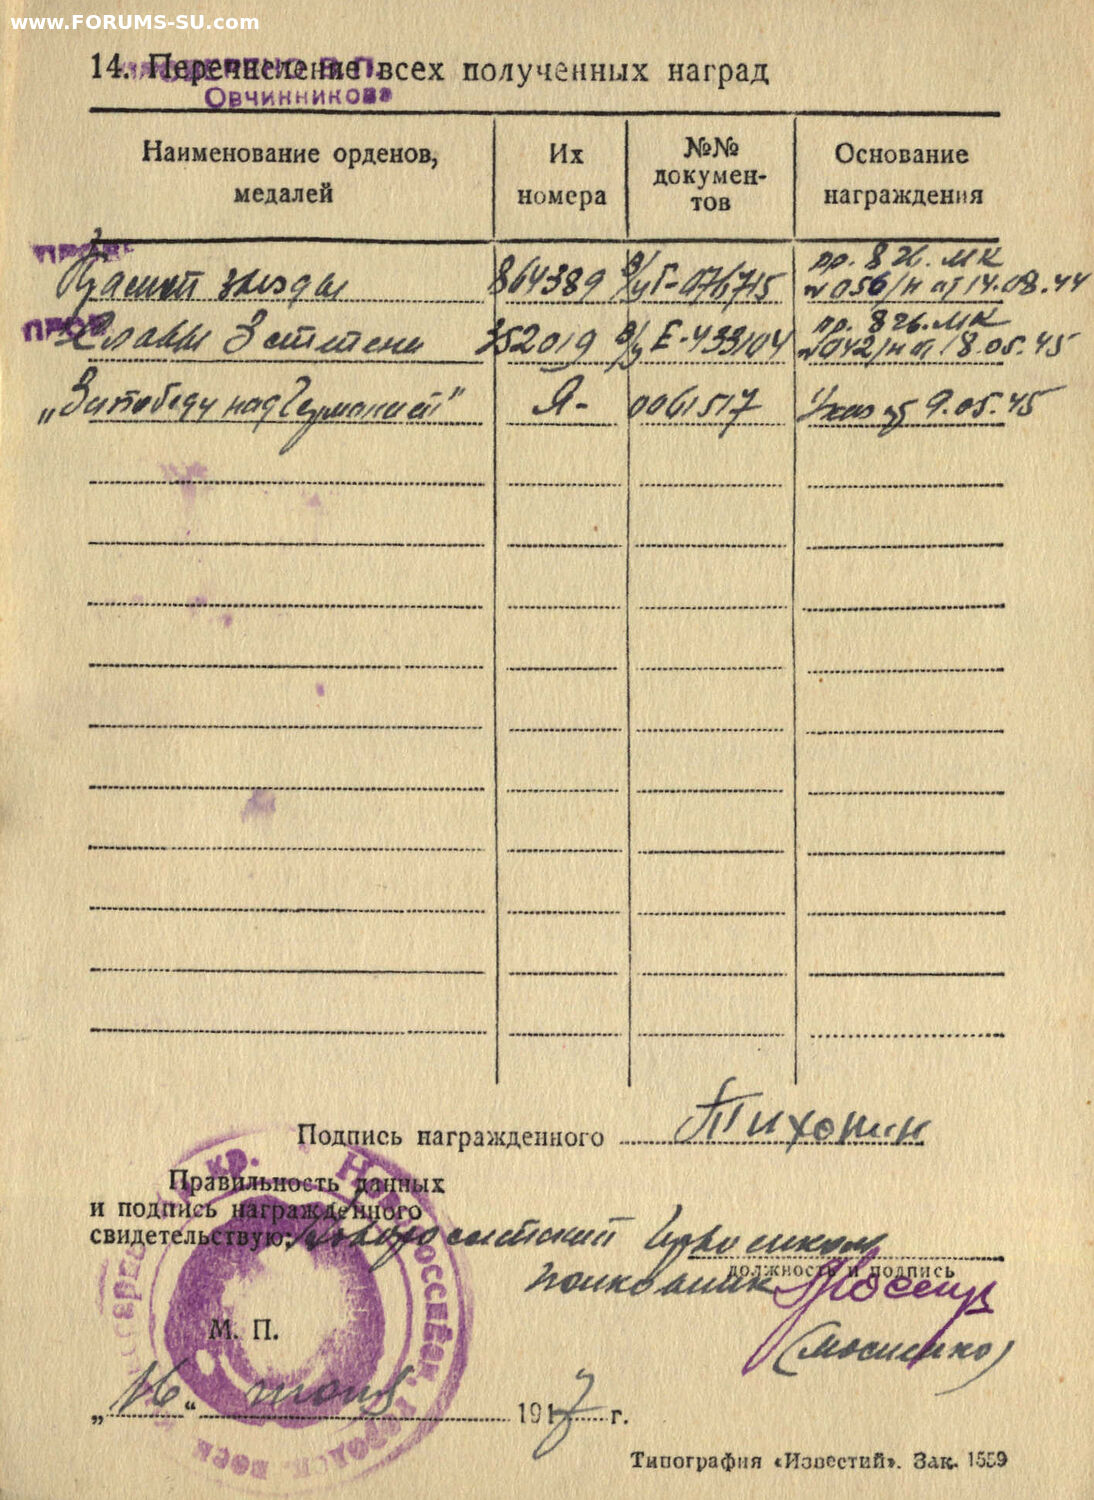 www.FORUMS-SU.com
14. Перечисление всех полученных наград
Овчинникова
Наименование орденов, медалей
Их номера
№№ докумен-тов
Основание награждения
Красной звезды 864389 в/у Г-076715 пр. 8 гв. МК
№ 056/н от 14.08.44
Славы 3 степени 352019 в/у Е-433104 пр. 8 гв. МК
№ 042/н от 18.05.45
„За победу над Германией" Я- 0061517 Указ от 9.05.45
Подпись награжденного Тихонин
Правильность данных
и подпись награжденного
свидетельствую: Новороссийский Горвоенком
должность и подпись
полковник
(Мосиенко)
М. П.
„16“ июня 1947 г.
Типография «Известий». Зак. 1559